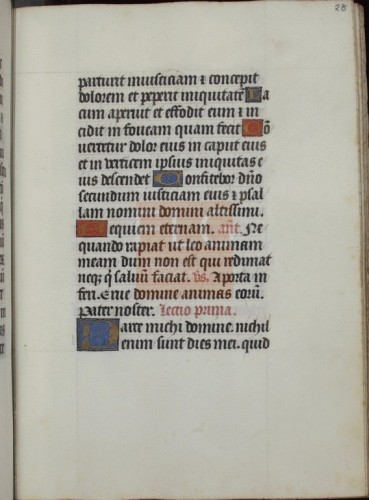 28
parturit iniusticiam et concepit
dolorem et peperit iniquitatē La
cum aperuit et effodit eum et in
cidit in foueam quam fecit Cō
uertetur dolor eius in caput eius
et in verticem ipsius iniquitas e
ius descendet Confitebor dño
secundum iusticiam eius et psal
lam nomini domini altissimi.
Requiem eternam. añ. Ne
quando rapiat ut leo animam
meam dum non est qui redimat
neqꝫ q̄ saluū faciat. vs. A porta in
feri. Erue domine animas eorū.
Pater noster. Lectio prima.
Parce michi domine. nichil
enim sunt dies mei. quid